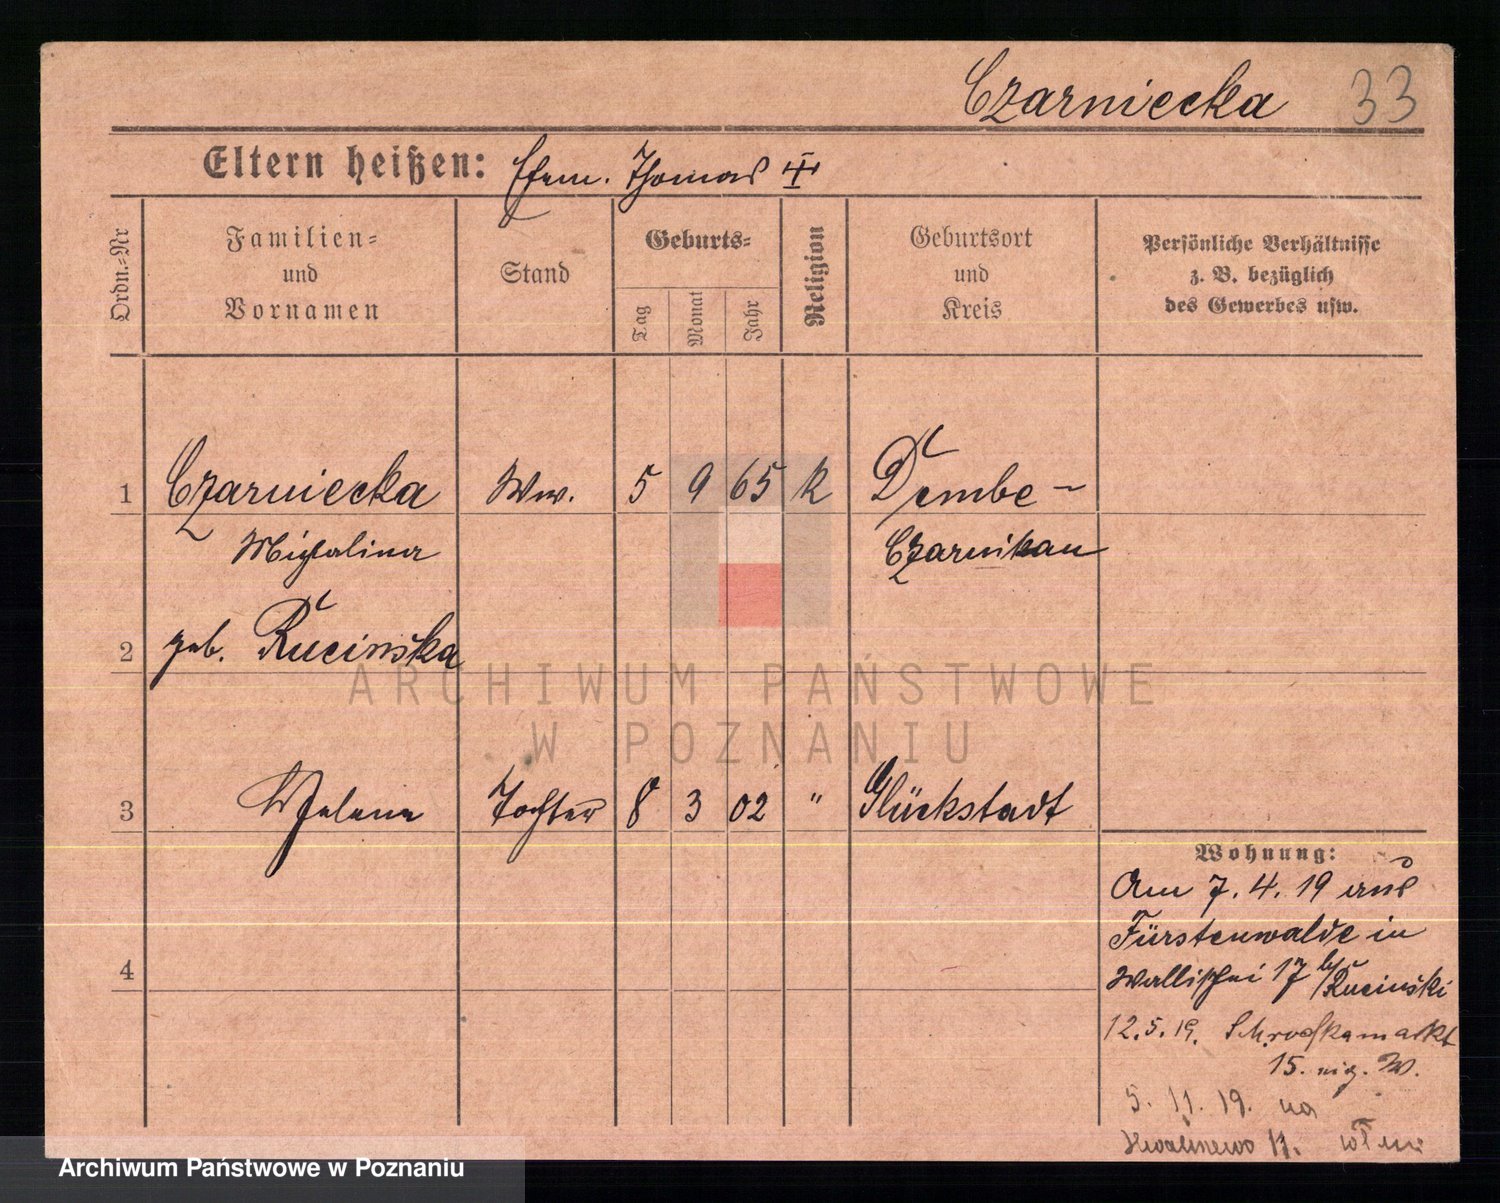 Czarniecka 33
Eltern heißen: Ehem. Thomas
Ordn.-Nr
Familien-
und
Vornamen
Stand
Geburts-
Tag
Monat
Jahr
Religion
Geburtsort
und
Kreis
Persönliche Verhältnisse
z. B. bezüglich
des Gewerbes usw.
1 Czarniecka Ww. 5 9 65 k Dembe -
Michalina Czarnikau
2 geb. Rucińska
ARCHIWUM PAŃSTWOWE
W POZNANIU
3 Helene Tochter 8 3 02 " Glückstadt
Wohnung:
Am 7.4.19 aus
Fürstenwalde in
Wallischei 17 b/Ruciński
12.5.19. Schrodkamarkt
15. eig. W.
4
5. 11. 19. na
11.
Archiwum Państwowe w Poznaniu